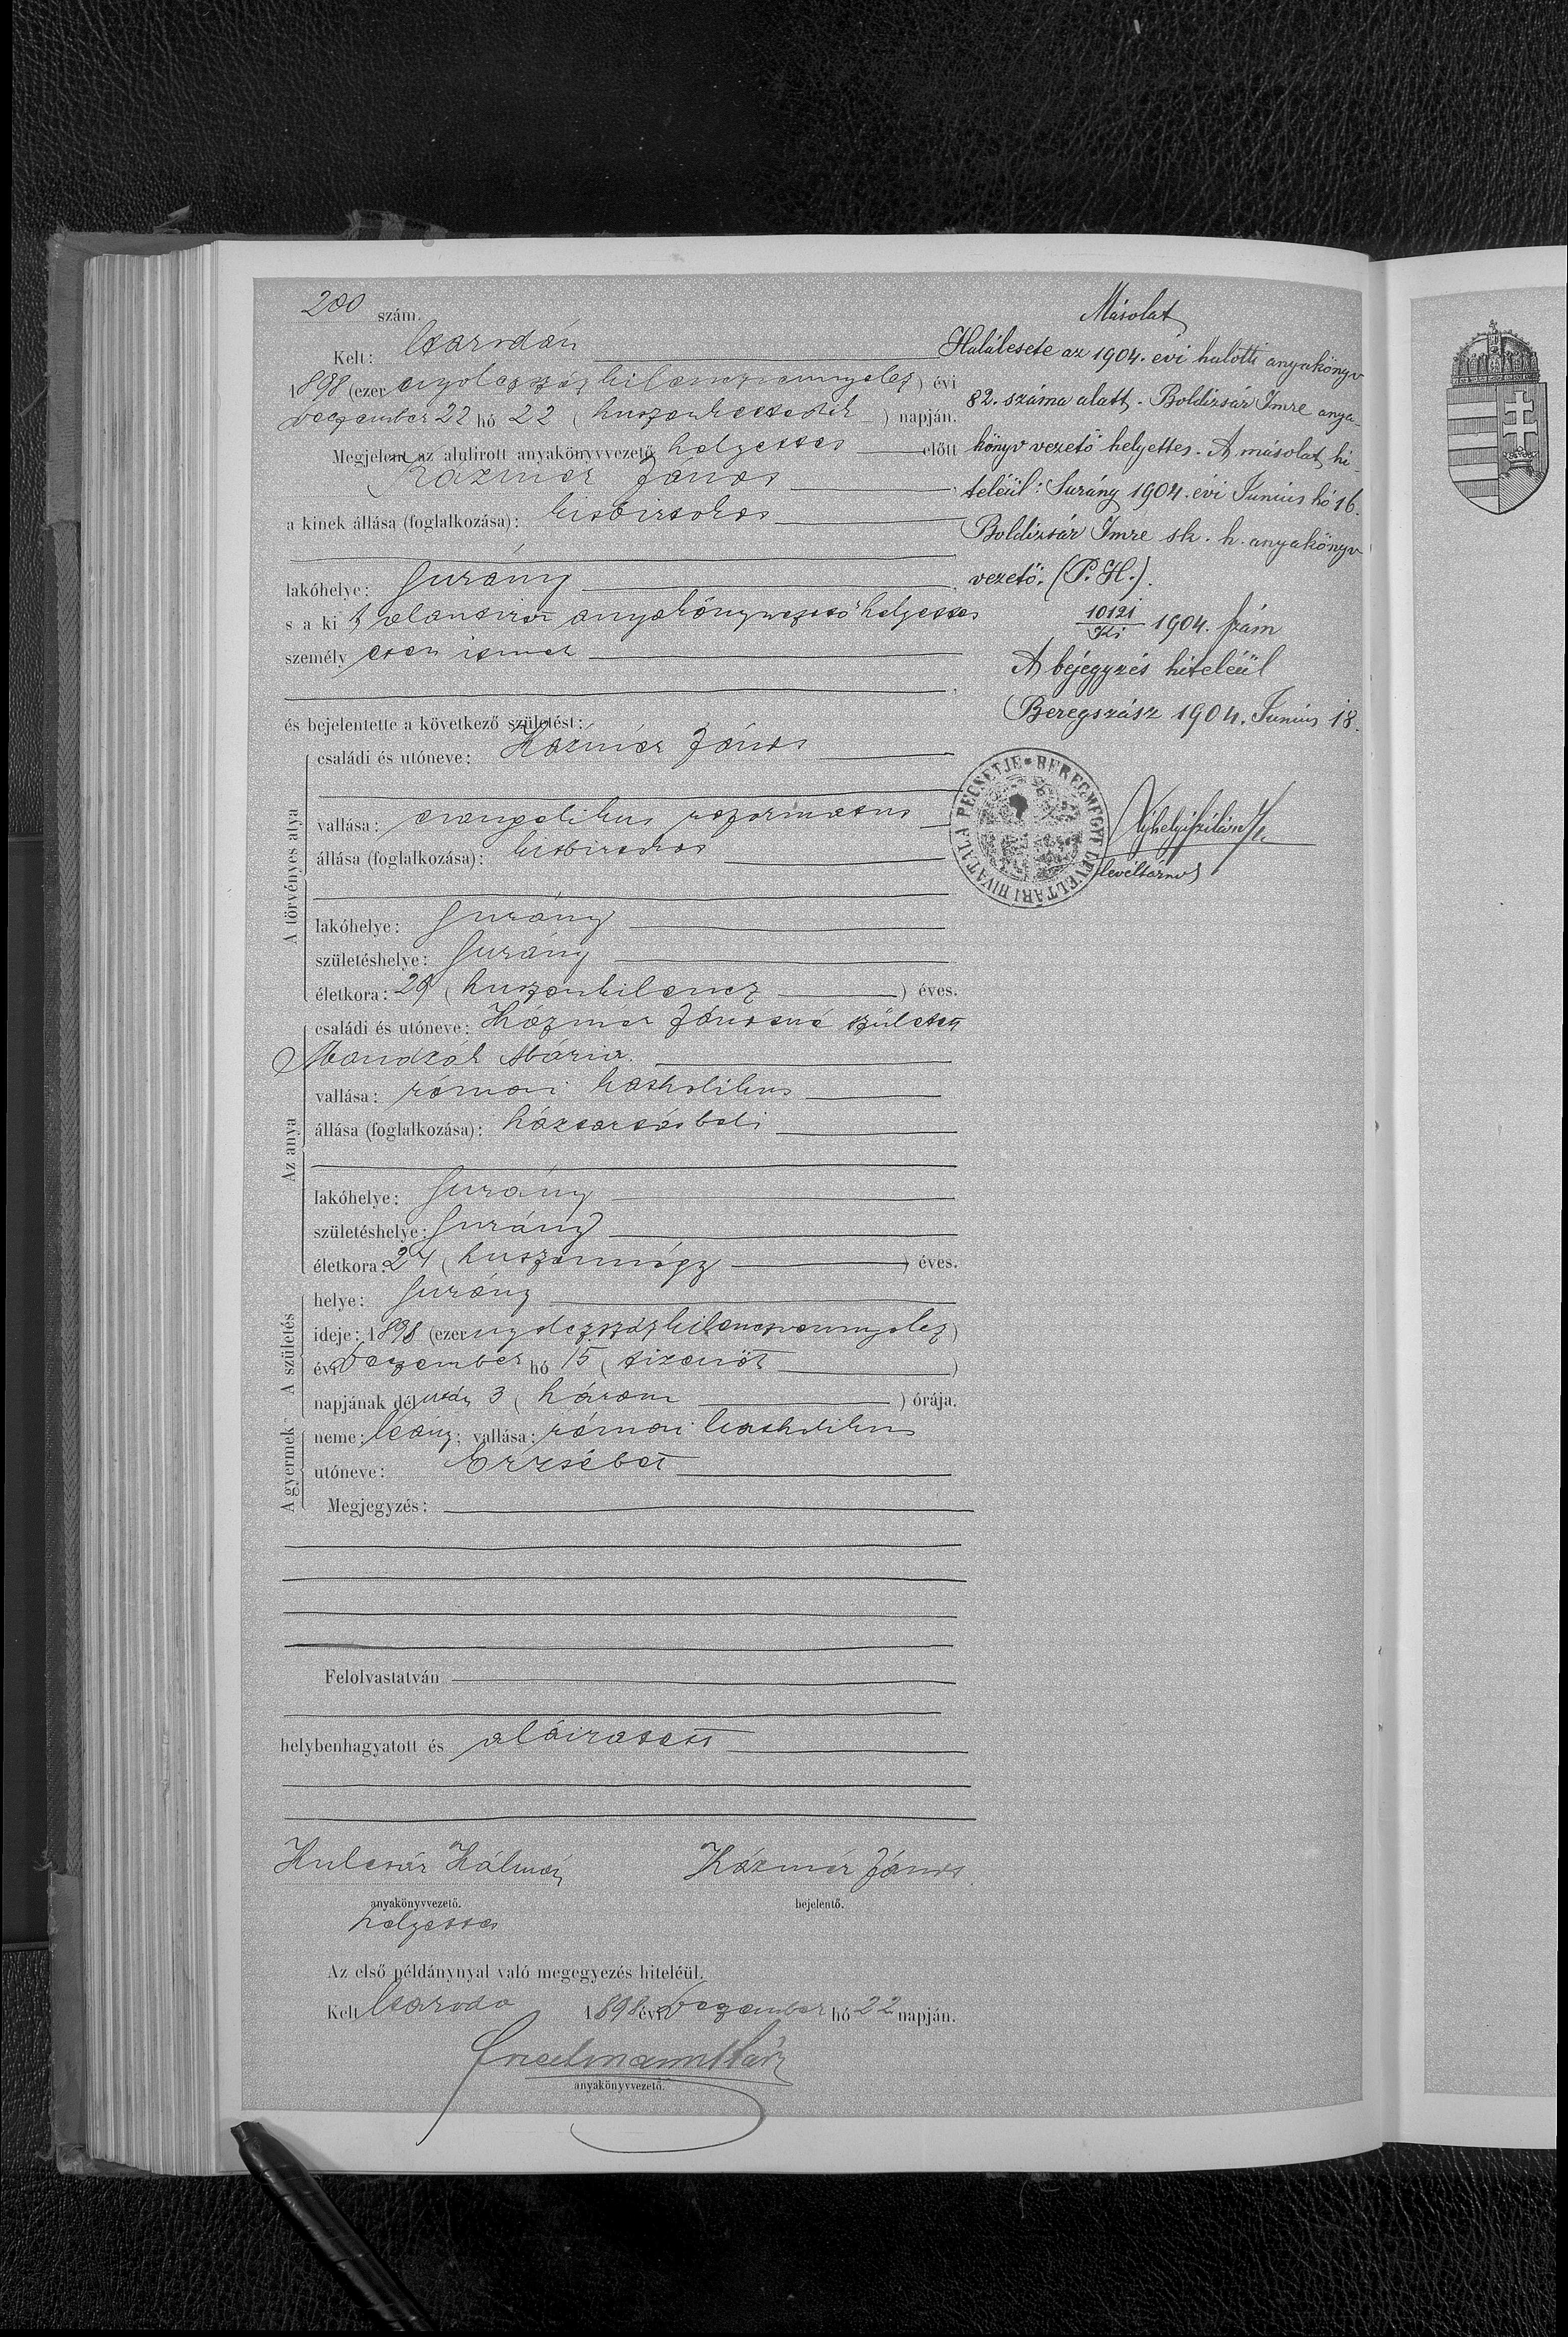 200 szám.
Kelt: Csarodán
1898 (ezer nyolczszáz kilenczvennyolcz) évi
deczember 22 hó 22 (huszonkettedik) napján.
Megjelent az alulirott anyakönyvvezető helyettes előtt
Kázmér János
a kinek állása (foglalkozása): kisbirtokos
lakóhelye: Surány
s a ki t alantirott anyakönyvvezető helyettes
személyesen ismer
és bejelentette a következő születést:
A törvényes atya
családi és utóneve: Kázmér János
vallása: evangelikus reformatus
állása (foglalkozása): kisbirtokos
lakóhelye: Surány
születéshelye: Surány
életkora: 29 (huszonkilencz) éves.
Az anya
családi és utóneve: Kázmér Jánosné született
Mandzák Mária.
vallása: római katholikus
állása (foglalkozása): háztartásbeli
lakóhelye: Surány
születéshelye: Surány
életkora: 24 (huszonnégy) éves.
A születés
helye: Surány
ideje: 1898 (ezer nyolczszázkilenczvennyolcz)
évi deczember hó 15 (tizenöt)
napjának délután 3 (három) órája.
A gyermek
neme: leány; vallása: római katholikus
utóneve: Erzsébet
Megjegyzés:
Felolvastatván
helybenhagyatott és aláiratott
Kulcsár Kálmán Kázmér János.
anyakönyvvezető. bejelentő.
helyettes
Az első példánynyal való megegyezés hiteléül.
Kelt Csaroda 1898 évi deczember hó 22 napján.
anyakönyvvezető.
Másolat
Halálesete az 1904. évi halotti anyakönyv
82. száma alatt. Boldizsár Imre anya-
könyv vezető helyettes. A másolat hi-
teléül: Surány 1904. évi Junius hó 16.
Boldizsár Imre sk. h. anyakönyv
vezető. (P. H.).
10121/Ki 1904. szám
A bejegyzés hiteléül
Beregszász 1904. Junius 18.
BEREGMEGYE LEVÉLTÁRI HIVATALA PECSÉTJE
levéltárnok